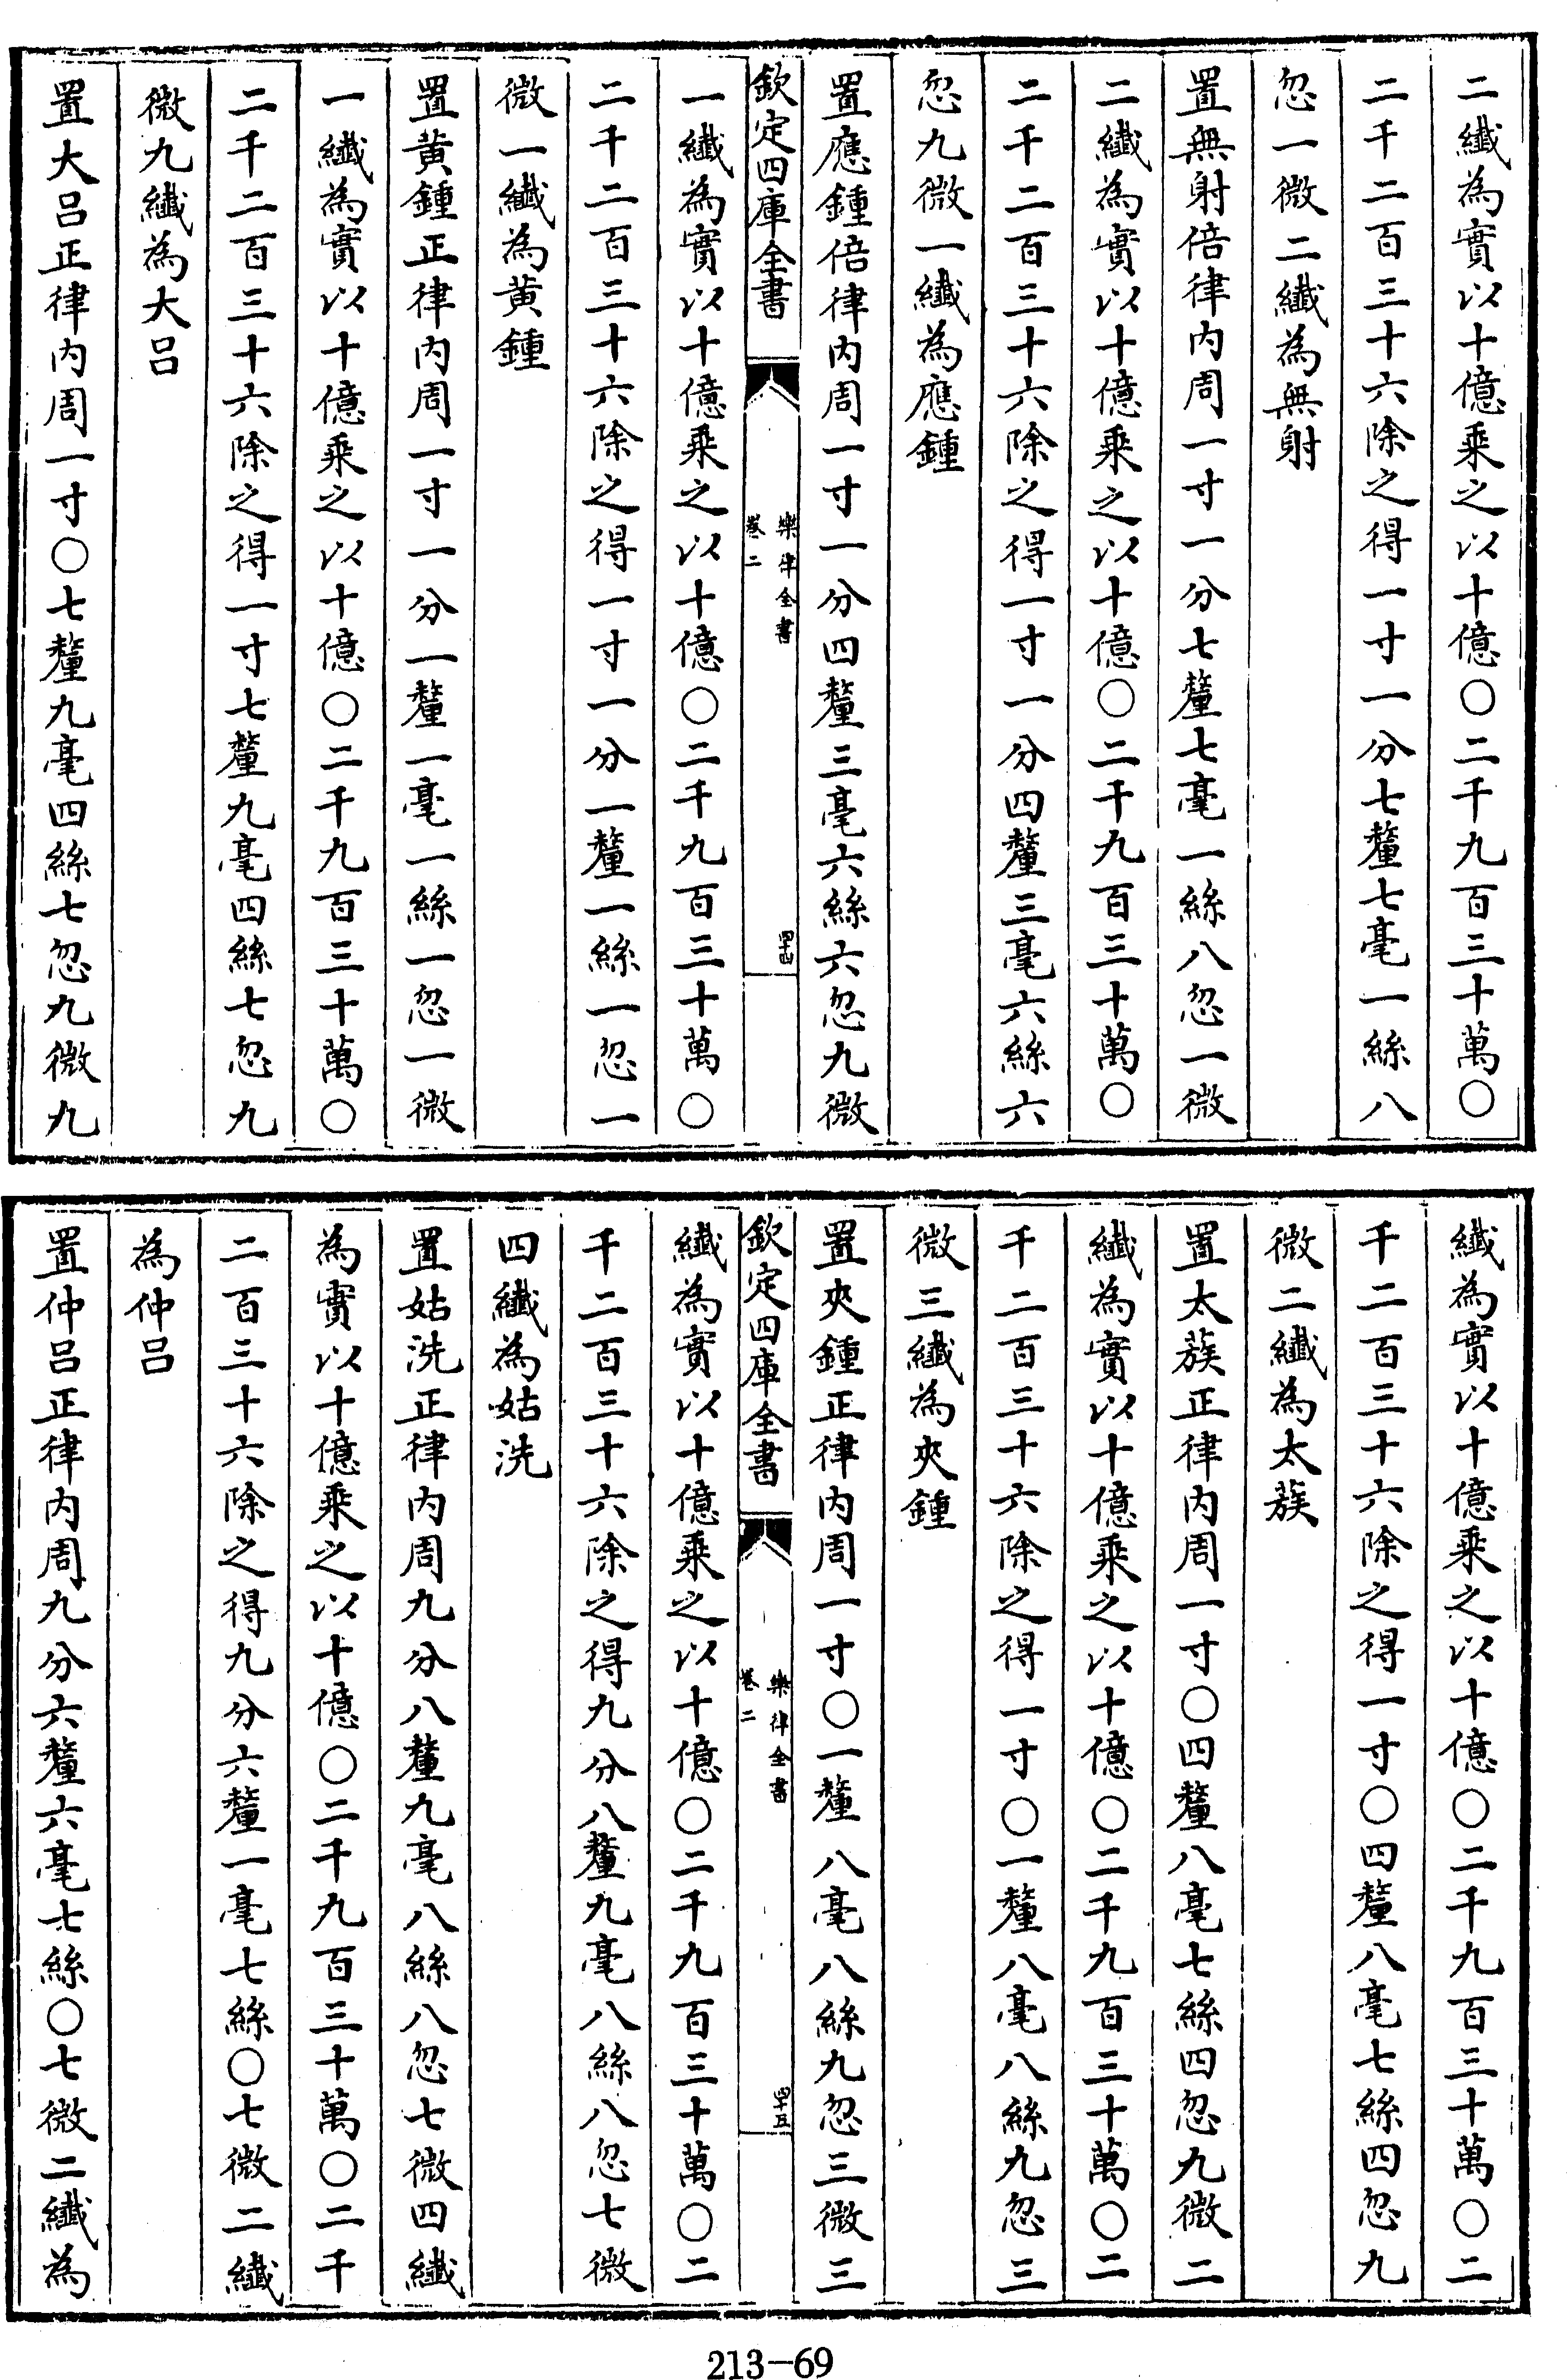 二纖為實以十億乘之以十億〇二千九百三十萬〇
二千二百三十六除之得一寸一分七釐七毫一絲八
忽一微二纖為無射
置無射倍律内周一寸一分七釐七毫一絲八忽一微
二纖為實以十億乘之以十億〇二千九百三十萬〇
二千二百三十六除之得一寸一分四釐三毫六絲六
忽九微一纖為應鍾
置應鍾倍律内周一寸一分四釐三毫六絲六忽九微
欽定四庫全書
樂律全書
卷二
四十四
一纖為實以十億乘之以十億〇二千九百三十萬〇
二千二百三十六除之得一寸一分一釐一絲一忽一
微一纖為黄鍾
置黄鍾正律内周一寸一分一釐一毫一絲一忽一微
一纖為實以十億乘之以十億〇二千九百三十萬〇
二千二百三十六除之得一寸七釐九毫四絲七忽九
微九纖為大呂
置大呂正律内周一寸〇七釐九毫四絲七忽九微九
纖為實以十億乘之以十億〇二千九百三十萬〇二
千二百三十六除之得一寸〇四釐八毫七絲四忽九
微二纖為太蔟
置太蔟正律内周一寸〇四釐八毫七絲四忽九微二
纖為實以十億乘之以十億〇二千九百三十萬〇二
千二百三十六除之得一寸〇一釐八毫八絲九忽三
微三纖為夾鍾
置夾鍾正律内周一寸〇一釐八毫八絲九忽三微三
欽定四庫全書
樂律全書
卷二
四十五
纖為實以十億乘之以十億〇二千九百三十萬〇二
千二百三十六除之得九分八釐九毫八絲八忽七微
四纖為姑洗
置姑洗正律内周九分八釐九毫八絲八忽七微四纖
為實以十億乘之以十億〇二千九百三十萬〇二千
二百三十六除之得九分六釐一毫七絲〇七微二纖
為仲呂
置仲呂正律内周九分六釐六毫七絲〇七微二纖為
213-69